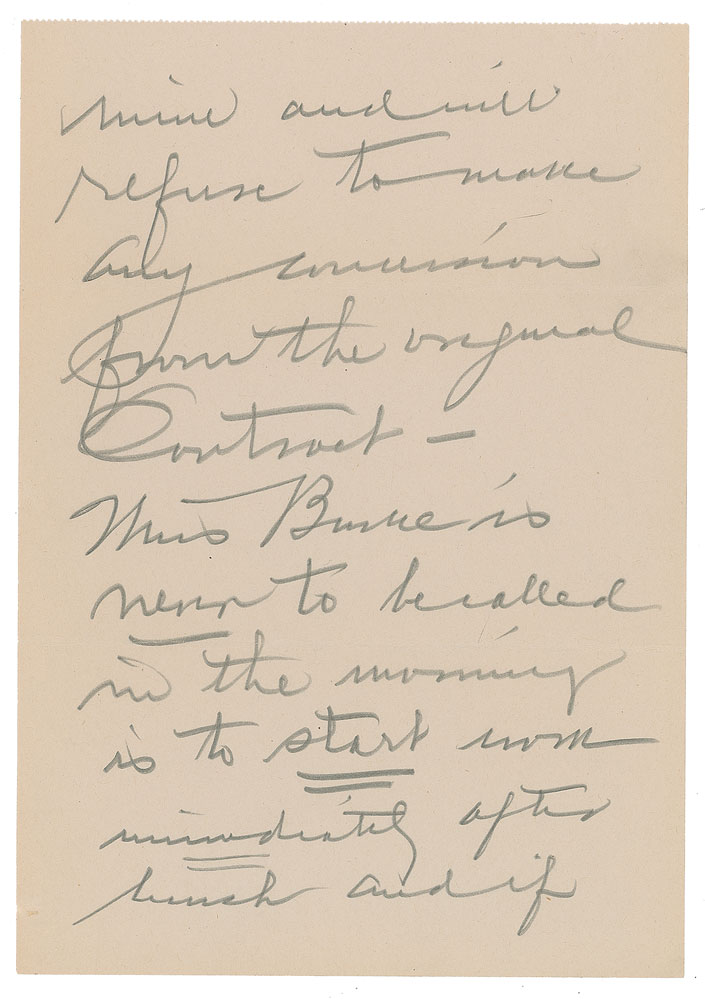 mine and will
refuse to make
any concession
from the original
Contract —
Miss Burke is
never to be called
in the morning
is to start work
immediately after
lunch and if